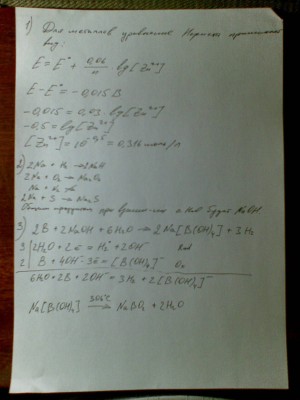 1) Для металлов уравнение Нернста принимает
вид:
E = E° + 0,06/n · lg[Zn²⁺]
E - E° = -0,015 В
-0,015 = 0,03 · lg[Zn²⁺]
-0,5 = lg[Zn²⁺]
[Zn²⁺] = 10^-0,5 = 0,316 моль/л
2) 2Na + H₂ → 2NaH
2Na + O₂ → Na₂O₂
Na + N₂ ≠
2Na + S → Na₂S
при с H₂O будет NaOH
3) 2B + 2NaOH + 6H₂O → 2Na[B(OH)₄] + 3H₂
3 | 2H₂O + 2e = H₂ + 2OH⁻
2 | B + 4OH⁻ - 3e = [B(OH)₄]⁻
6H₂O + 2B + 2OH⁻ = 3H₂ + 2[B(OH)₄]⁻
Na[B(OH)₄] → NaBO₂ + 2H₂O